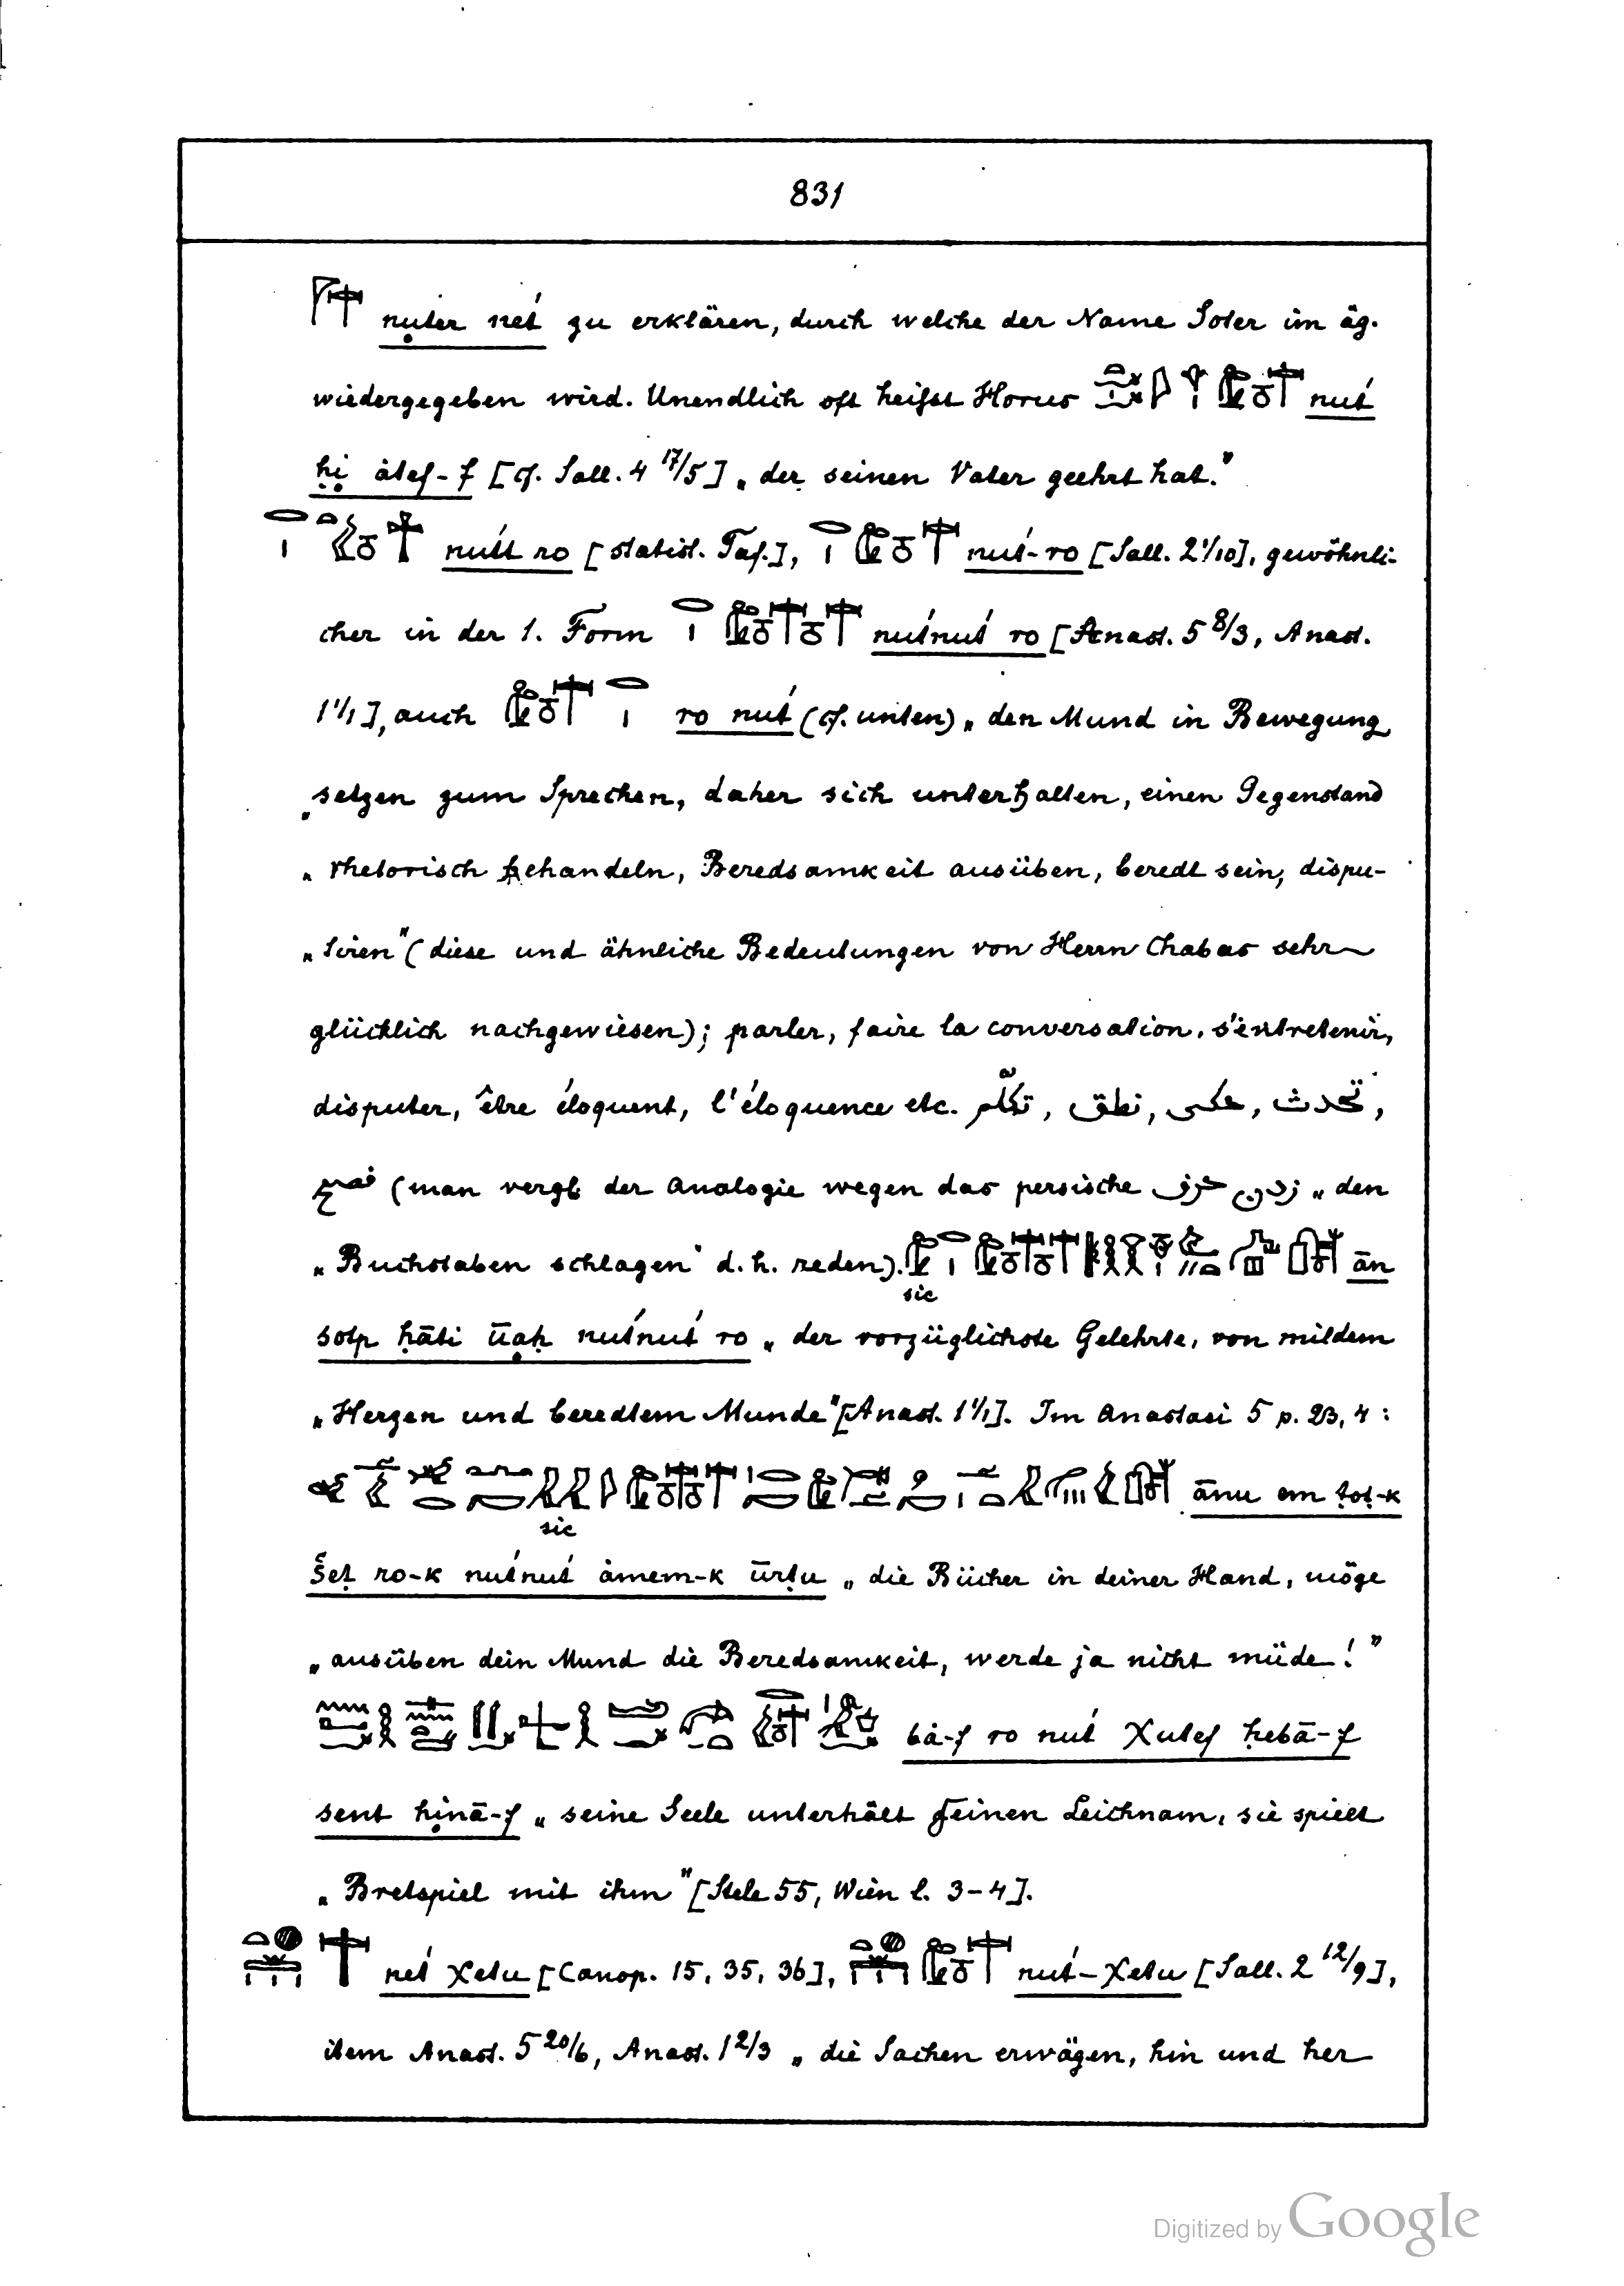 831
nuter net́ zu erklären, durch welche der Name Soter im äg.
wiedergegeben wird. Unendlich oft heifst Horus nut́
ḥi àtef-f [cf. Sall. 4 17/5] „der seinen Vater geehrt hat."
nut́t ro [statist. Taf.], nut́-ro [Sall. 2 1/10], gewöhnli-
cher in der 1. Form nut́nut́ ro [Anast. 5 8/3, Anast.
1 1/1], auch ro nut́ (cf. unten) „den Mund in Bewegung
„setzen zum Sprechen, daher sich unterhalten, einen Gegenstand
„rhetorisch behandeln, Beredsamkeit ausüben, beredt sein, dispu-
„tiren" (diese und ähnliche Bedeutungen von Herrn Chabas sehr
glücklich nachgewiesen); parler, faire la conversation, s'entretenir,
disputer, être éloquent, l'éloquence etc. تكلّم, نطق, حكى, تحدث,
فصيح (man vergl. der Analogie wegen das persische حرف زدن „den
„Buchstaben schlagen" d.h. reden). ān
sic
sotp ḥāti ūaḥ nut́nut́ ro „der vorzüglichste Gelehrte, von mildem
„Herzen und beredtem Munde" [Anast. 1 1/1]. Im Anastasi 5 p. 23, 4:
ānu em ṭoṭ-k
sic
šeṭ ro-k nut́nut́ àmem-k ūrṭu „die Bücher in deiner Hand, möge
„ausüben dein Mund die Beredsamkeit, werde ja nicht müde!"
bà-f ro nut́ χutef ḥebā-f
sent ḥinā-f „seine Seele unterhält seinen Leichnam, sie spielt
„Bretspiel mit ihm" [Stele 55, Wien l. 3-4].
net́ χetu [Canop. 15, 35, 36], nut́-χetu [Sall. 2 12/9],
item Anast. 5 20/6, Anast. 1 2/3 „die Sachen erwägen, hin und her
Digitized by Google